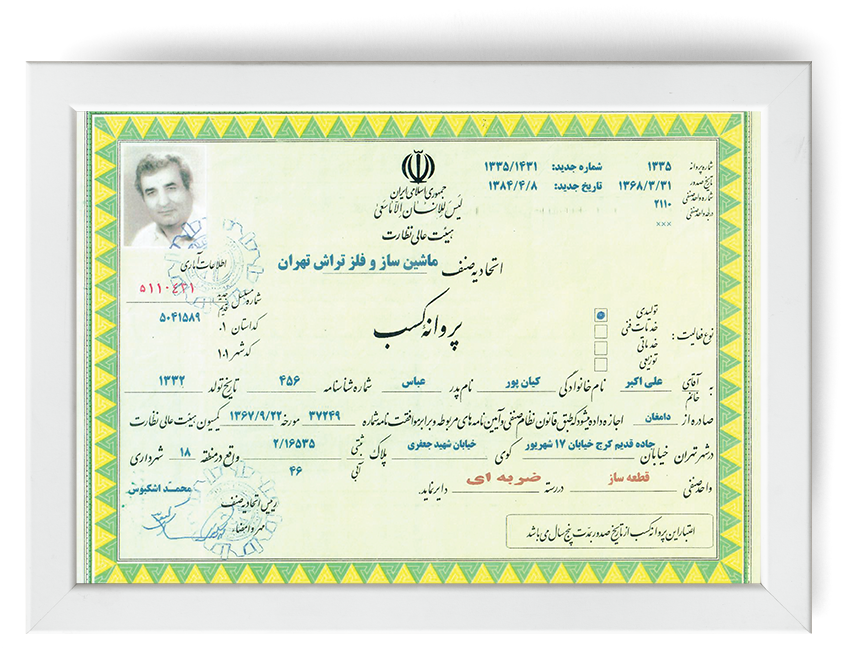 شماره پروانه ۱۳۳۵ شماره جدید: ۱۳۳۵/۱۴۳۱
تاریخ صدور ۱۳۶۸/۳/۳۱ تاریخ جدید: ۱۳۸۴/۴/۸
شماره واحد صنفی ۲۱۱۰
درجه واحد صنفی ×××
جمهوری اسلامی ایران
لَیسَ لِلاِنسانِ اِلّا ماسَعیٰ
هیئت عالی نظارت
اتحادیه صنف ماشین ساز و فلز تراش تهران
پروانه کسب
اطلاعات آماری
۵۱۱۰۴۳۱
شماره مسلسل جدید قدیم
۵۰۴۱۵۸۹
کد استان ۱.
کد شهر ۱.۱
نوع فعالیت:
تولیدی
خدمات فنی
خدماتی
توزیعی
به آقای خانم علی اکبر نام خانوادگی کیان پور نام پدر عباس شماره شناسنامه ۴۵۶ تاریخ تولد ۱۳۳۲
صادره از دامغان اجازه داده میشود که طبق قانون نظام صنفی و آیین نامه های مربوطه و برابر موافقت نامه شماره ۳۷۲۴۹ مورخه ۱۳۶۷/۹/۲۲ کمیسیون هیئت عالی نظارت
در شهر تهران خیابان جاده قدیم کرج خیابان ۱۷ شهریور کوی خیابان شهید جعفری پلاک ثبتی ۲/۱۶۵۳۵ آبی ۴۶ واقع در منطقه ۱۸ شهرداری
واحد صنفی قطعه ساز در رسته ضربه ای دایر نماید.
محمد اشکبوس
رییس اتحادیه صنف
مهر و امضاء
اعتبار این پروانه کسب از تاریخ صدور بمدت پنج سال می باشد